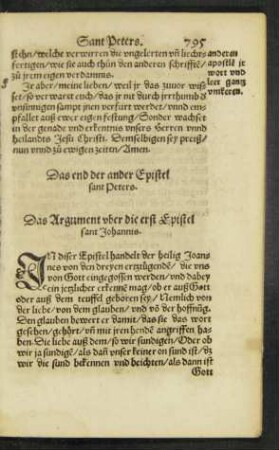 Sant Peters. 795
stehn/welche verwirren die vngelerten vñ liechts
fertigen/wie sie auch thůn den andern schrifftē/
zů jrem eigen verdamnis.
anderen
apostlē je
wort vnd
leer gantz
vmkeren.
Ir aber/meine lieben/weil jr das zuuor wiss
set/so verwaret euch/das jr nit durch jrrthumb d
vnsinnigen sampt jnen verfurt werdet/vnnd ents
pfallet auß ewer eigen festung/Sonder wachset
in der genade vnd erkentnus vnsers herren vnnd
heilandts Jesu Christi. Demselbigen sey preiß/
nun vnnd zů ewigen zeiten/Amen.
Das end der ander Epistel
sant Peters.
Das Argument vber die erst Epistel
sant Johannis.
IN diser Epistel handelt der heilig Joans
nes von den dreyen
von Gott eingegossen werden/vnd dabey
ein jezlicher erkenne mag/ob er auß Gott
oder auß dem teuffel geboren sey/Nemlich von
der liebe/von dem glauben/vnd vō der hoffnūg.
Den glauben bewert er damit/das sie das wort
gesehen/gehört/vñ mit jren hendē angriffen ha
ben. Die liebe auß dem/so wir sundigen/Oder ob
wir ja sundigē/als dañ vnser keiner on sund ist/dz
wir die sund bekennen vnd beichten/als dann ist
Gott